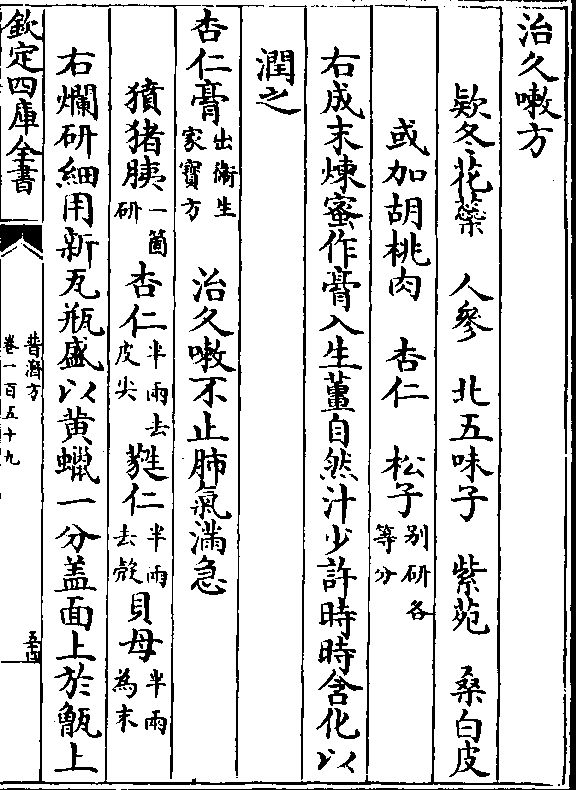 治久嗽方
欵冬花蘂 人參 北五味子 紫苑 桑白皮
或加胡桃肉 杏仁 松子别研各等分
右成末煉蜜作膏入生薑自然汁少許時時含化以
潤之
杏仁膏出衛生家寳方 治久嗽不止肺氣滿急
獖猪胰一箇研 杏仁半兩去皮尖 蕤仁半兩去殻 貝母半兩為末
右爛研細用新瓦瓶盛以黄蠟一分盖面上於甑上
欽定四庫全書
普濟方
卷一百五十九
五十四